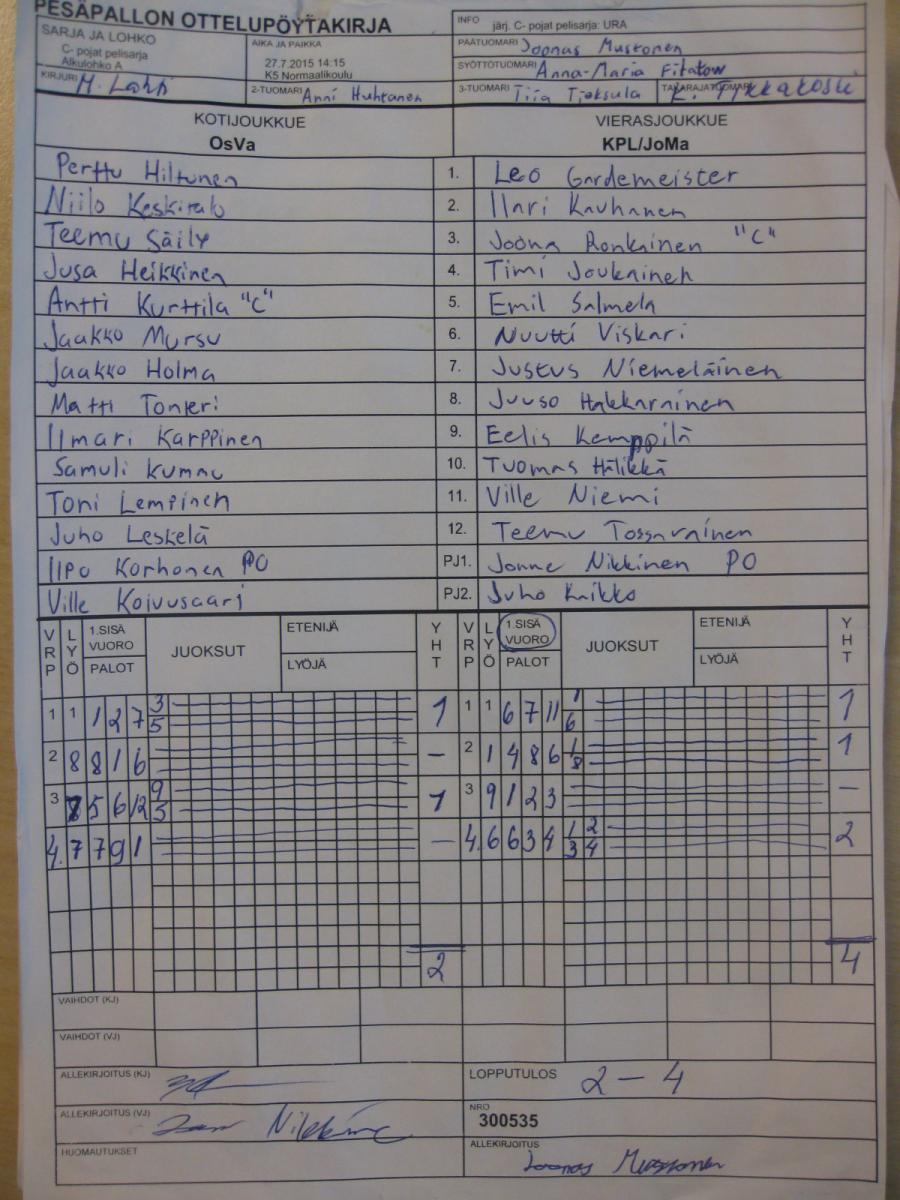 PESÄPALLON OTTELUPÖYTÄKIRJA
INFO järj. C- pojat pelisarja: URA
SARJA JA LOHKO
C- pojat pelisarja
Alkulohko A
AIKA JA PAIKKA
27.7.2015 14:15
K5 Normaalikoulu
PÄÄTUOMARI Joonas Mustonen
SYÖTTÖTUOMARI Anna-Maria Filatow
KIRJURI M. Lahti
2-TUOMARI Anni Huhtanen
3-TUOMARI Tiia Tieksula
TAKARAJATUOMARI K. Tikkakoski
KOTIJOUKKUE VIERASJOUKKUE
OsVa KPL/JoMa
Perttu Hiltunen 1. Leo Gardemeister
Niilo Keskitalo 2. Ilari Kauhanen
Teemu Säily 3. Joona Ronkainen "C"
Jusa Heikkinen 4. Timi Joukainen
Antti Kurttila "C" 5. Emil Salmela
Jaakko Mursu 6. Nuutti Viskari
Jaakko Holma 7. Justus Niemeläinen
Matti Tonteri 8. Juuso Hakkarainen
Ilmari Karppinen 9. Eelis Kemppilä
Samuli Kummu 10. Tuomas Hälikkä
Toni Lempinen 11. Ville Niemi
Juho Leskelä 12. Teemu Tossavainen
Ilpo Korhonen PO PJ1. Jonne Nikkinen PO
Ville Koivusaari PJ2. Juho Kaikko
VRP LYÖ 1.SISÄ VUORO PALOT JUOKSUT ETENIJÄ LYÖJÄ YHT VRP LYÖ 1.SISÄ VUORO PALOT JUOKSUT ETENIJÄ LYÖJÄ YHT
1 1 1 2 7 3 5 1 1 1 6 7 11 1 6 1
2 8 8 1 6 – 2 1 4 8 6 1 8 1
3 5 6 12 9 5 1 3 9 1 2 3 –
4. 7 7 9 1 – 4. 6 6 3 4 1 2 3 4 2
2 4
VAIHDOT (KJ)
VAIHDOT (VJ)
ALLEKIRJOITUS (KJ)
LOPPUTULOS 2 – 4
ALLEKIRJOITUS (VJ) Nikkinen
NRO
300535
HUOMAUTUKSET
ALLEKIRJOITUS
Joonas Mustonen